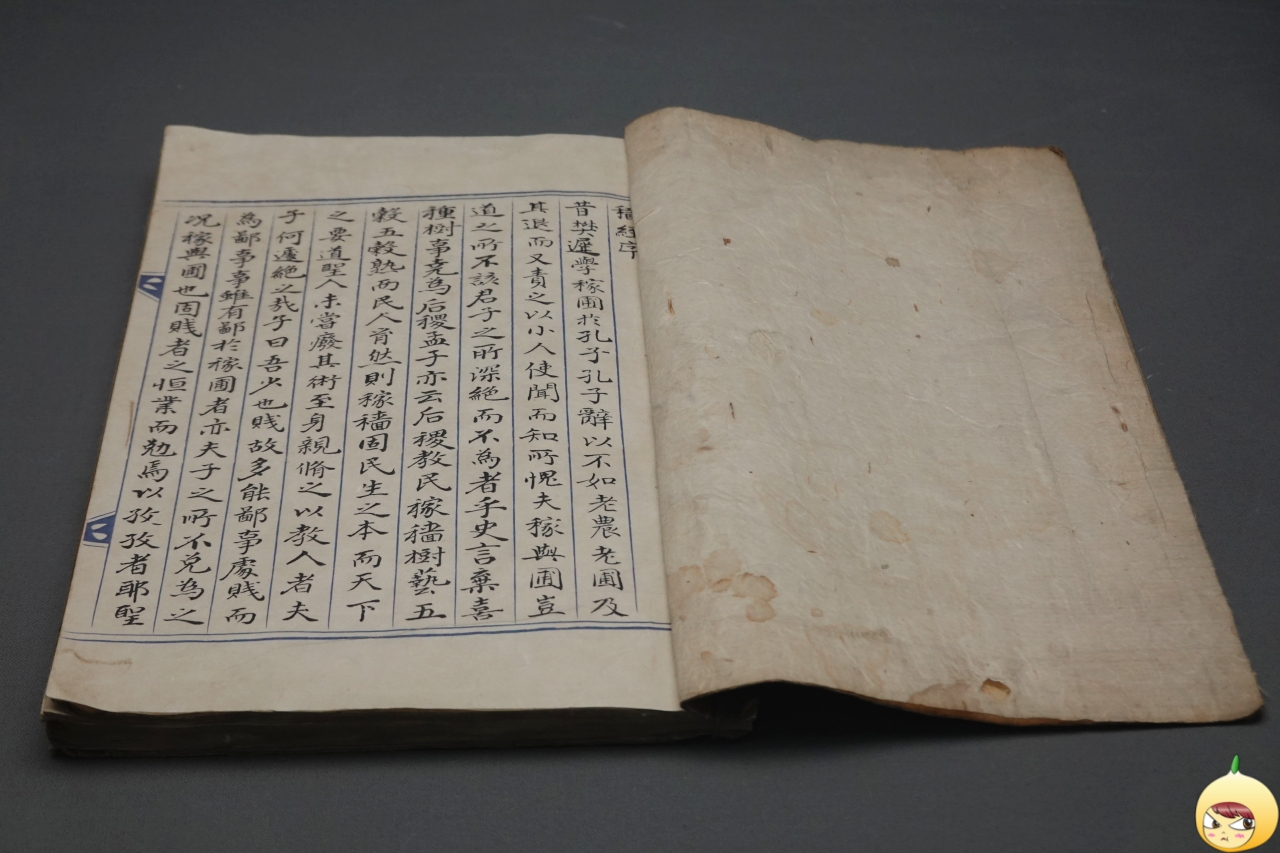 穡經序
昔樊遲學稼圃於孔子孔子辭以不如老農老圃及
其退而又責之以小人使聞而知所愧夫稼與圃豈
道之所不該君子之所深絕而不為者乎史言棄喜
種樹事堯為后稷孟子亦云后稷教民稼穡樹藝五
穀五穀熟而民人育然則稼穡固民生之本而天下
之要道聖人未嘗廢其術至身親脩之以教人者夫
子何遽絕之哉子曰吾少也賤故多能鄙事處賤而
為鄙事事雖有鄙於稼圃者亦夫子之所不免為之
况稼與圃也固賤者之恒業而勉焉以孜孜者耶聖